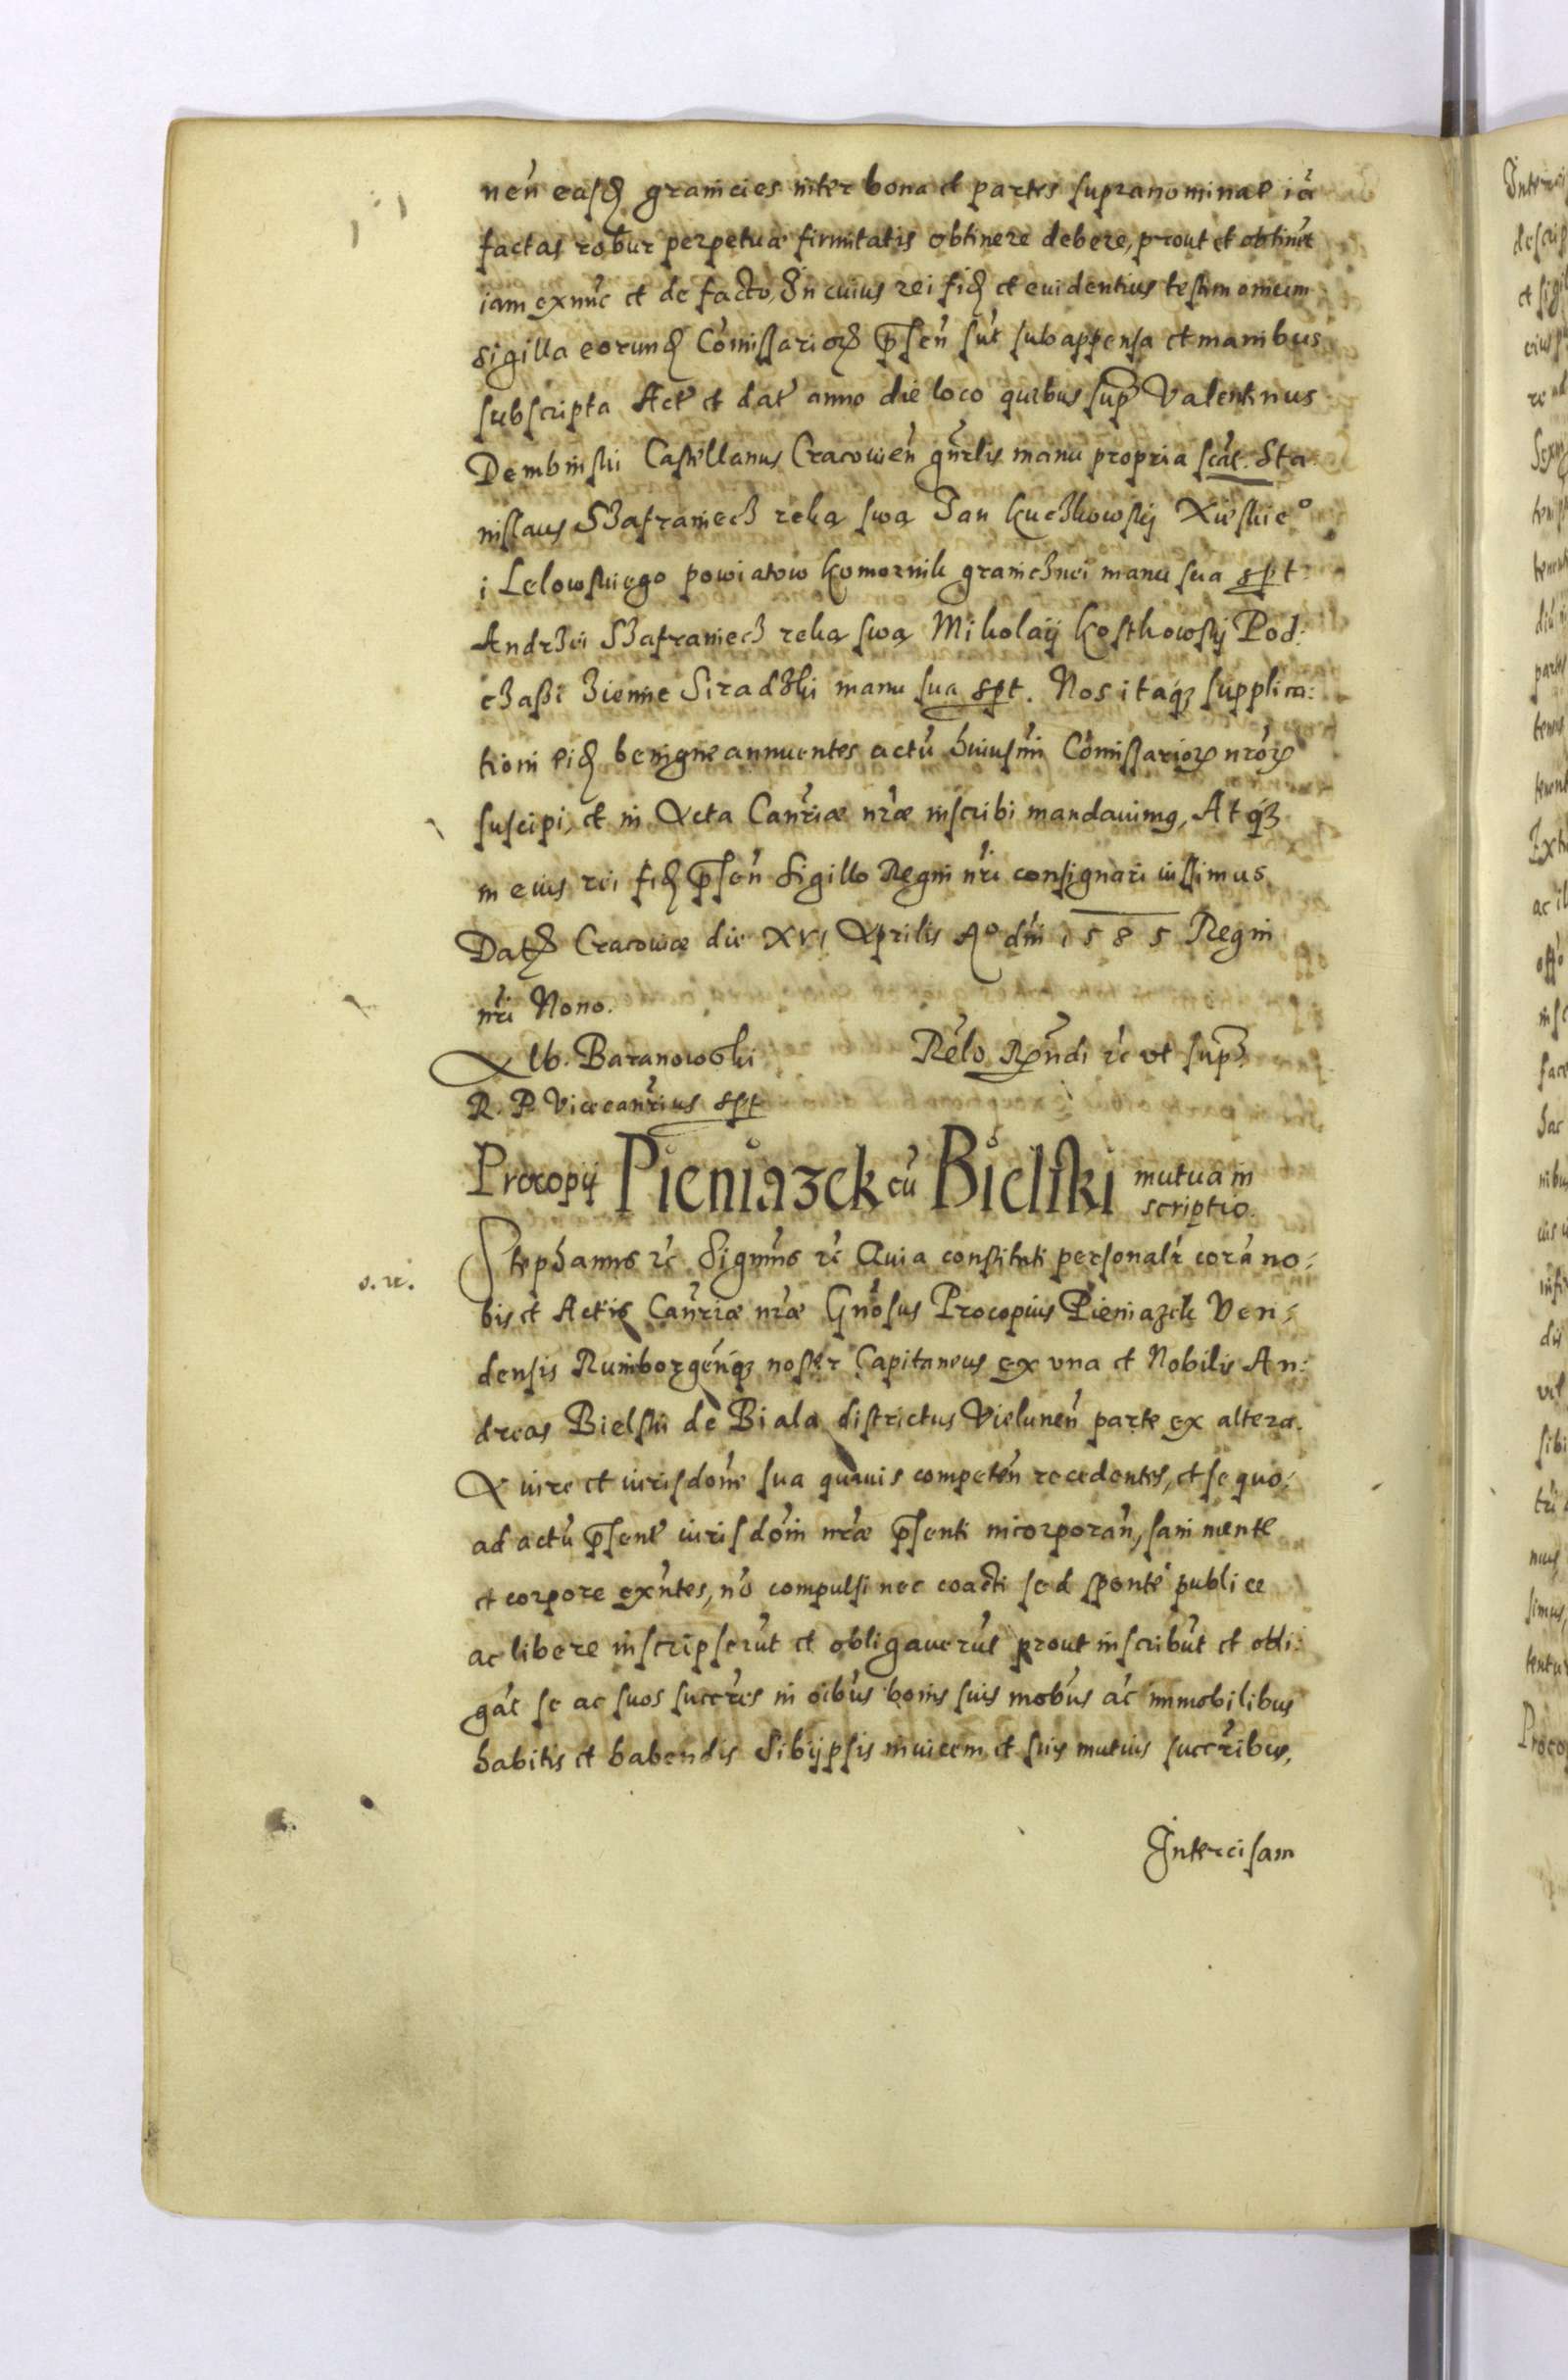 nen̄ easd̄ granicies inter bona et partes supranominat̄ iā
factas robur perpetuæ firmitatis obtinere debere, prout et obtinēt
iam exnūc et de facto, In cuius rei fid̄ et euidentius testimonium
sigilla eorund̄ Com̄issarior̄ p̄sen̄ sūt subappensa et manibus
subscripta Act̄ et dat̄ anno die loco quibus sup̄ Valentinus
Dembinski Castellanus Cracouien̄ gn̄rlis manu propria sc̄at. Sta
nislaus Szafraniecz reką swą Jan Kuczkowskÿ Xieskie°
i Lelowskiego powiatow Komornik granicznei manu sua spt
Andrzei Szafraniecz reką swą Mikolaÿ Kostkowskÿ Pod:
czaszi Ziemie Siradzki manu sua spt. Nos itaq́ʒ supplica:
tioni eid̄ benigne annuentes actū huiusm̄i Com̄issarioꝝ nr̄oꝝ
suscipi, et in Acta Canr̄iæ nr̄æ inscribi mandauimꝰ, Atq́ʒ
in eius rei fid̄ p̄sen̄ Sigillo Regni nr̄i consignari iussimus.
Dat̄ Cracouiæ die XVI Aprilis A° dn̄i 1585 Regni
nr̄i Nono.
Alb. Baranowski Rēlo Rn̄di rc̄ vt sup̄
R. P. Vicecanr̄ius spt
Procopÿ Pieniązek cū Bielski mutua in
scriptio.
Stephanus rc̄ Signm̄s rc̄ Quia constituti personalr̄ corā no:
s. rc.
bis et Actis Canr̄iæ nr̄æ Gn̄osus Procopius Pieniązek Ven:
densis Rumborgen̄q́ʒ noster Capitaneus ex vna et Nobilis An:
dreas Bielski de Biala districtus Vielunen̄ parte ex altera.
A iure et iurisdōne sua quauis competen̄ recedentes, et se quo:
ad actū p̄sent̄ iurisdōni nr̄æ p̄senti incorporan̄, sani mente
et corpore exn̄tes, nō compulsi nec coacti sed sponte publice
ac libere inscripserūt et obligauerūt prout inscribūt et obli:
gāt se ac suos succr̄es in oīb̄us bonis suis mob̄us ac immobilibus
habitis et habendis Sibiipsis inuicem et suis mutuis succr̄ibus,
Intercisam